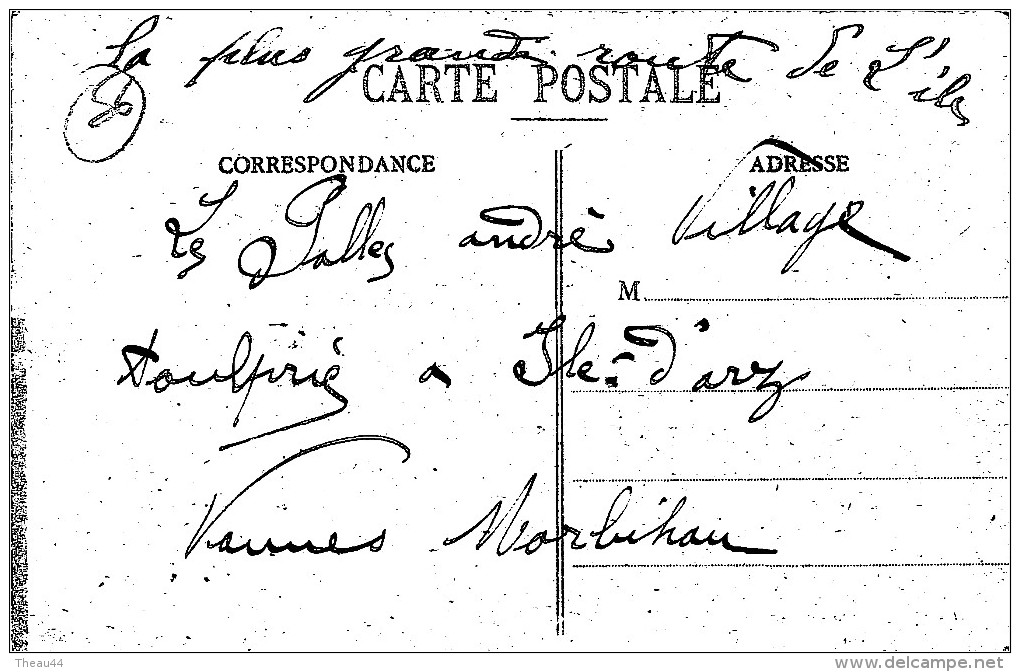 La plus grande route de L'ile
CARTE POSTALE
CORRESPONDANCE
ADRESSE
Le Palles andré Village
M
à Ile-d'arz
Vannes Morbihan
Theau44
delcampe.net